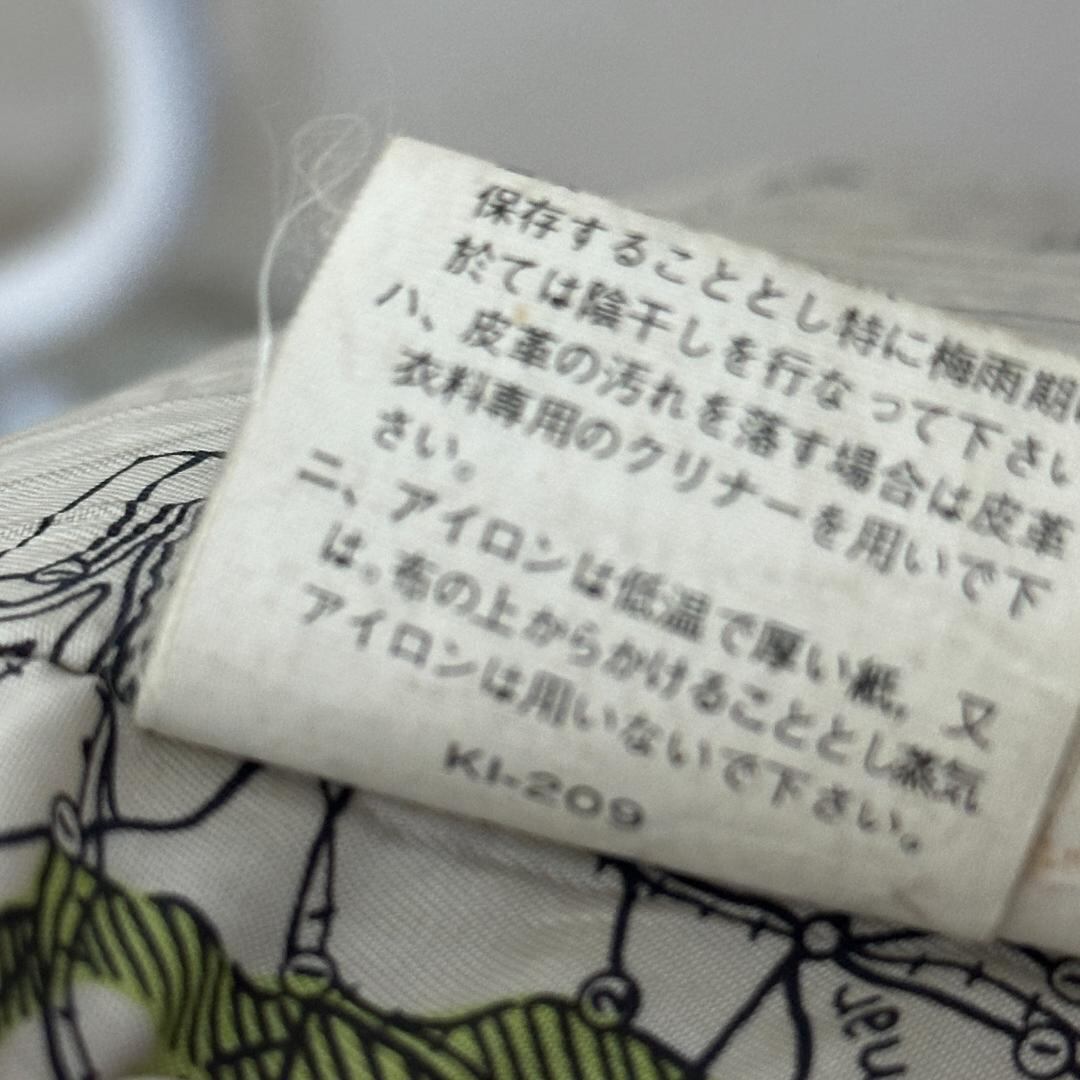 保存することとし特に梅雨期に
於ては陰干しを行なって下さい
ハ、皮革の汚れを落す場合は皮革
衣料専用のクリナーを用いで下
さい。
ニ、アイロンは低温で厚い紙，又
は。布の上からかけることとし蒸気
アイロンは用いないで下さい。
KI-209
2
1